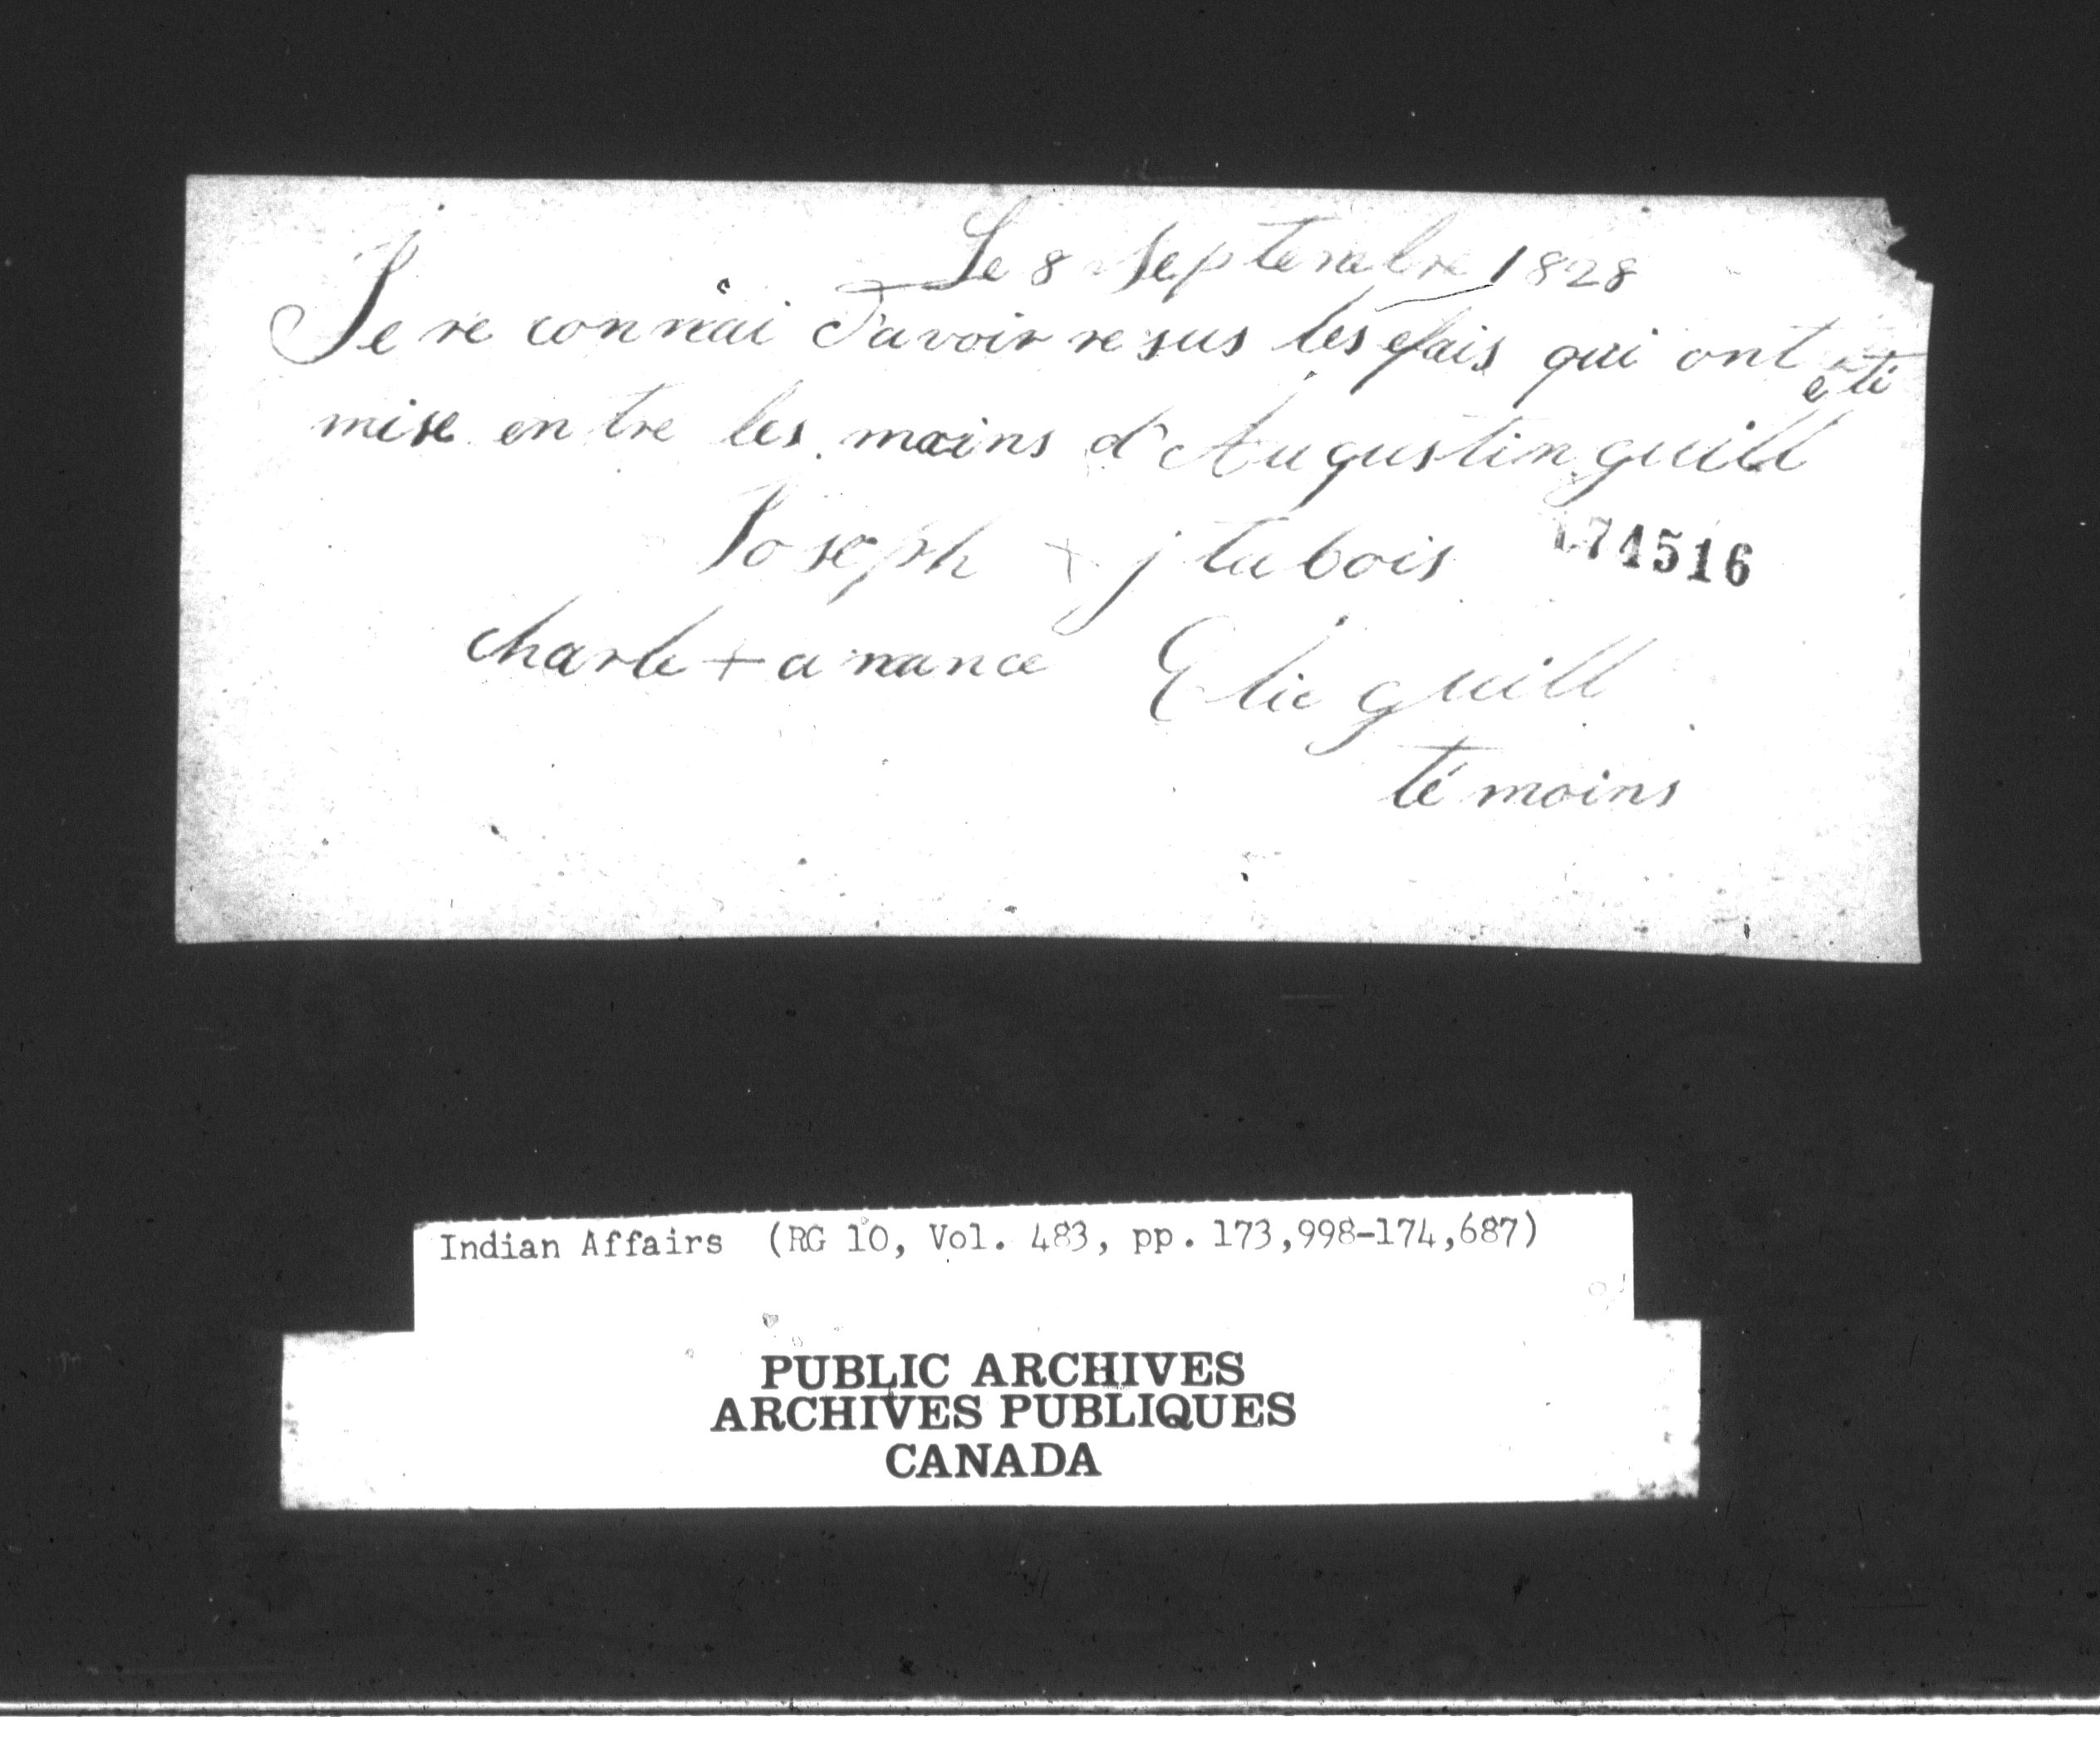 Le 8 Septembre 1828
Je re connai d'avoir resus les efais qui ont été
mise en tre les mains d'Augustin guill
Joseph + j tu bois
174516
charle + a nance Elie guill
té moins
Indian Affairs (RG 10, Vol. 483, pp. 173,998-174,687)
PUBLIC ARCHIVES
ARCHIVES PUBLIQUES
CANADA